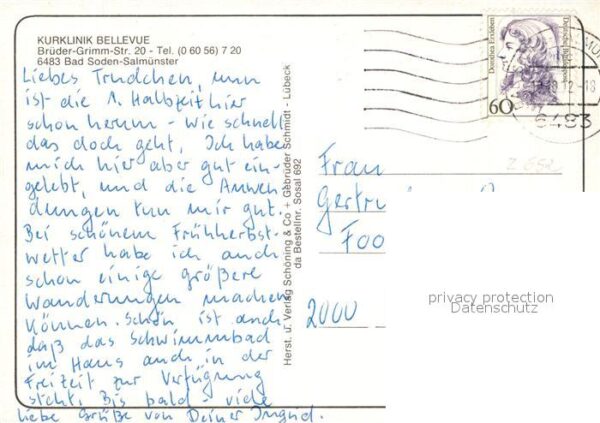 KURKLINIK BELLEVUE
Brüder-Grimm-Str. 20 - Tel. (0 60 56) 7 20
6483 Bad Soden-Salmünster
Liebes Trudchen, nun
ist die 1. Halbzeit hier
schon herum - wie schnell
das doch geht. Ich habe
mich hier aber gut ein-
gelebt, und die Anwen-
dungen tun mir gut.
Bei schönem Frühherbst-
wetter habe ich auch
schon einige größere
Wanderungen machen
können. Schön ist auch,
daß das Schwimmbad
im Haus auch in der
Freizeit zur Verfügung
steht. Bis bald - viele
liebe Grüße von Deiner Ingrid.
Herst. u. Verlag Schöning & Co + Gebrüder Schmidt - Lübeck
da Bestellnr. Sosal 692
Dorothea Erxleben
Deutsche Bundespost
60
6483
Frau
Gertru
Foo
2000
privacy protection
Datenschutz